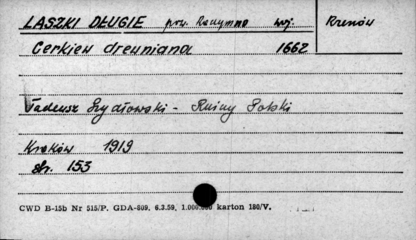 LASZKI DŁUGIE pow. Radymno woj. Rzeszów
Cerkiew drewniana 1662
Tadeusz Szydłowski - Ruiny Polski
Kraków 1919
str. 153
CWD B-15b Nr 515/P. GDA-809. 6.3.59. 1.000.000 karton 180/V.